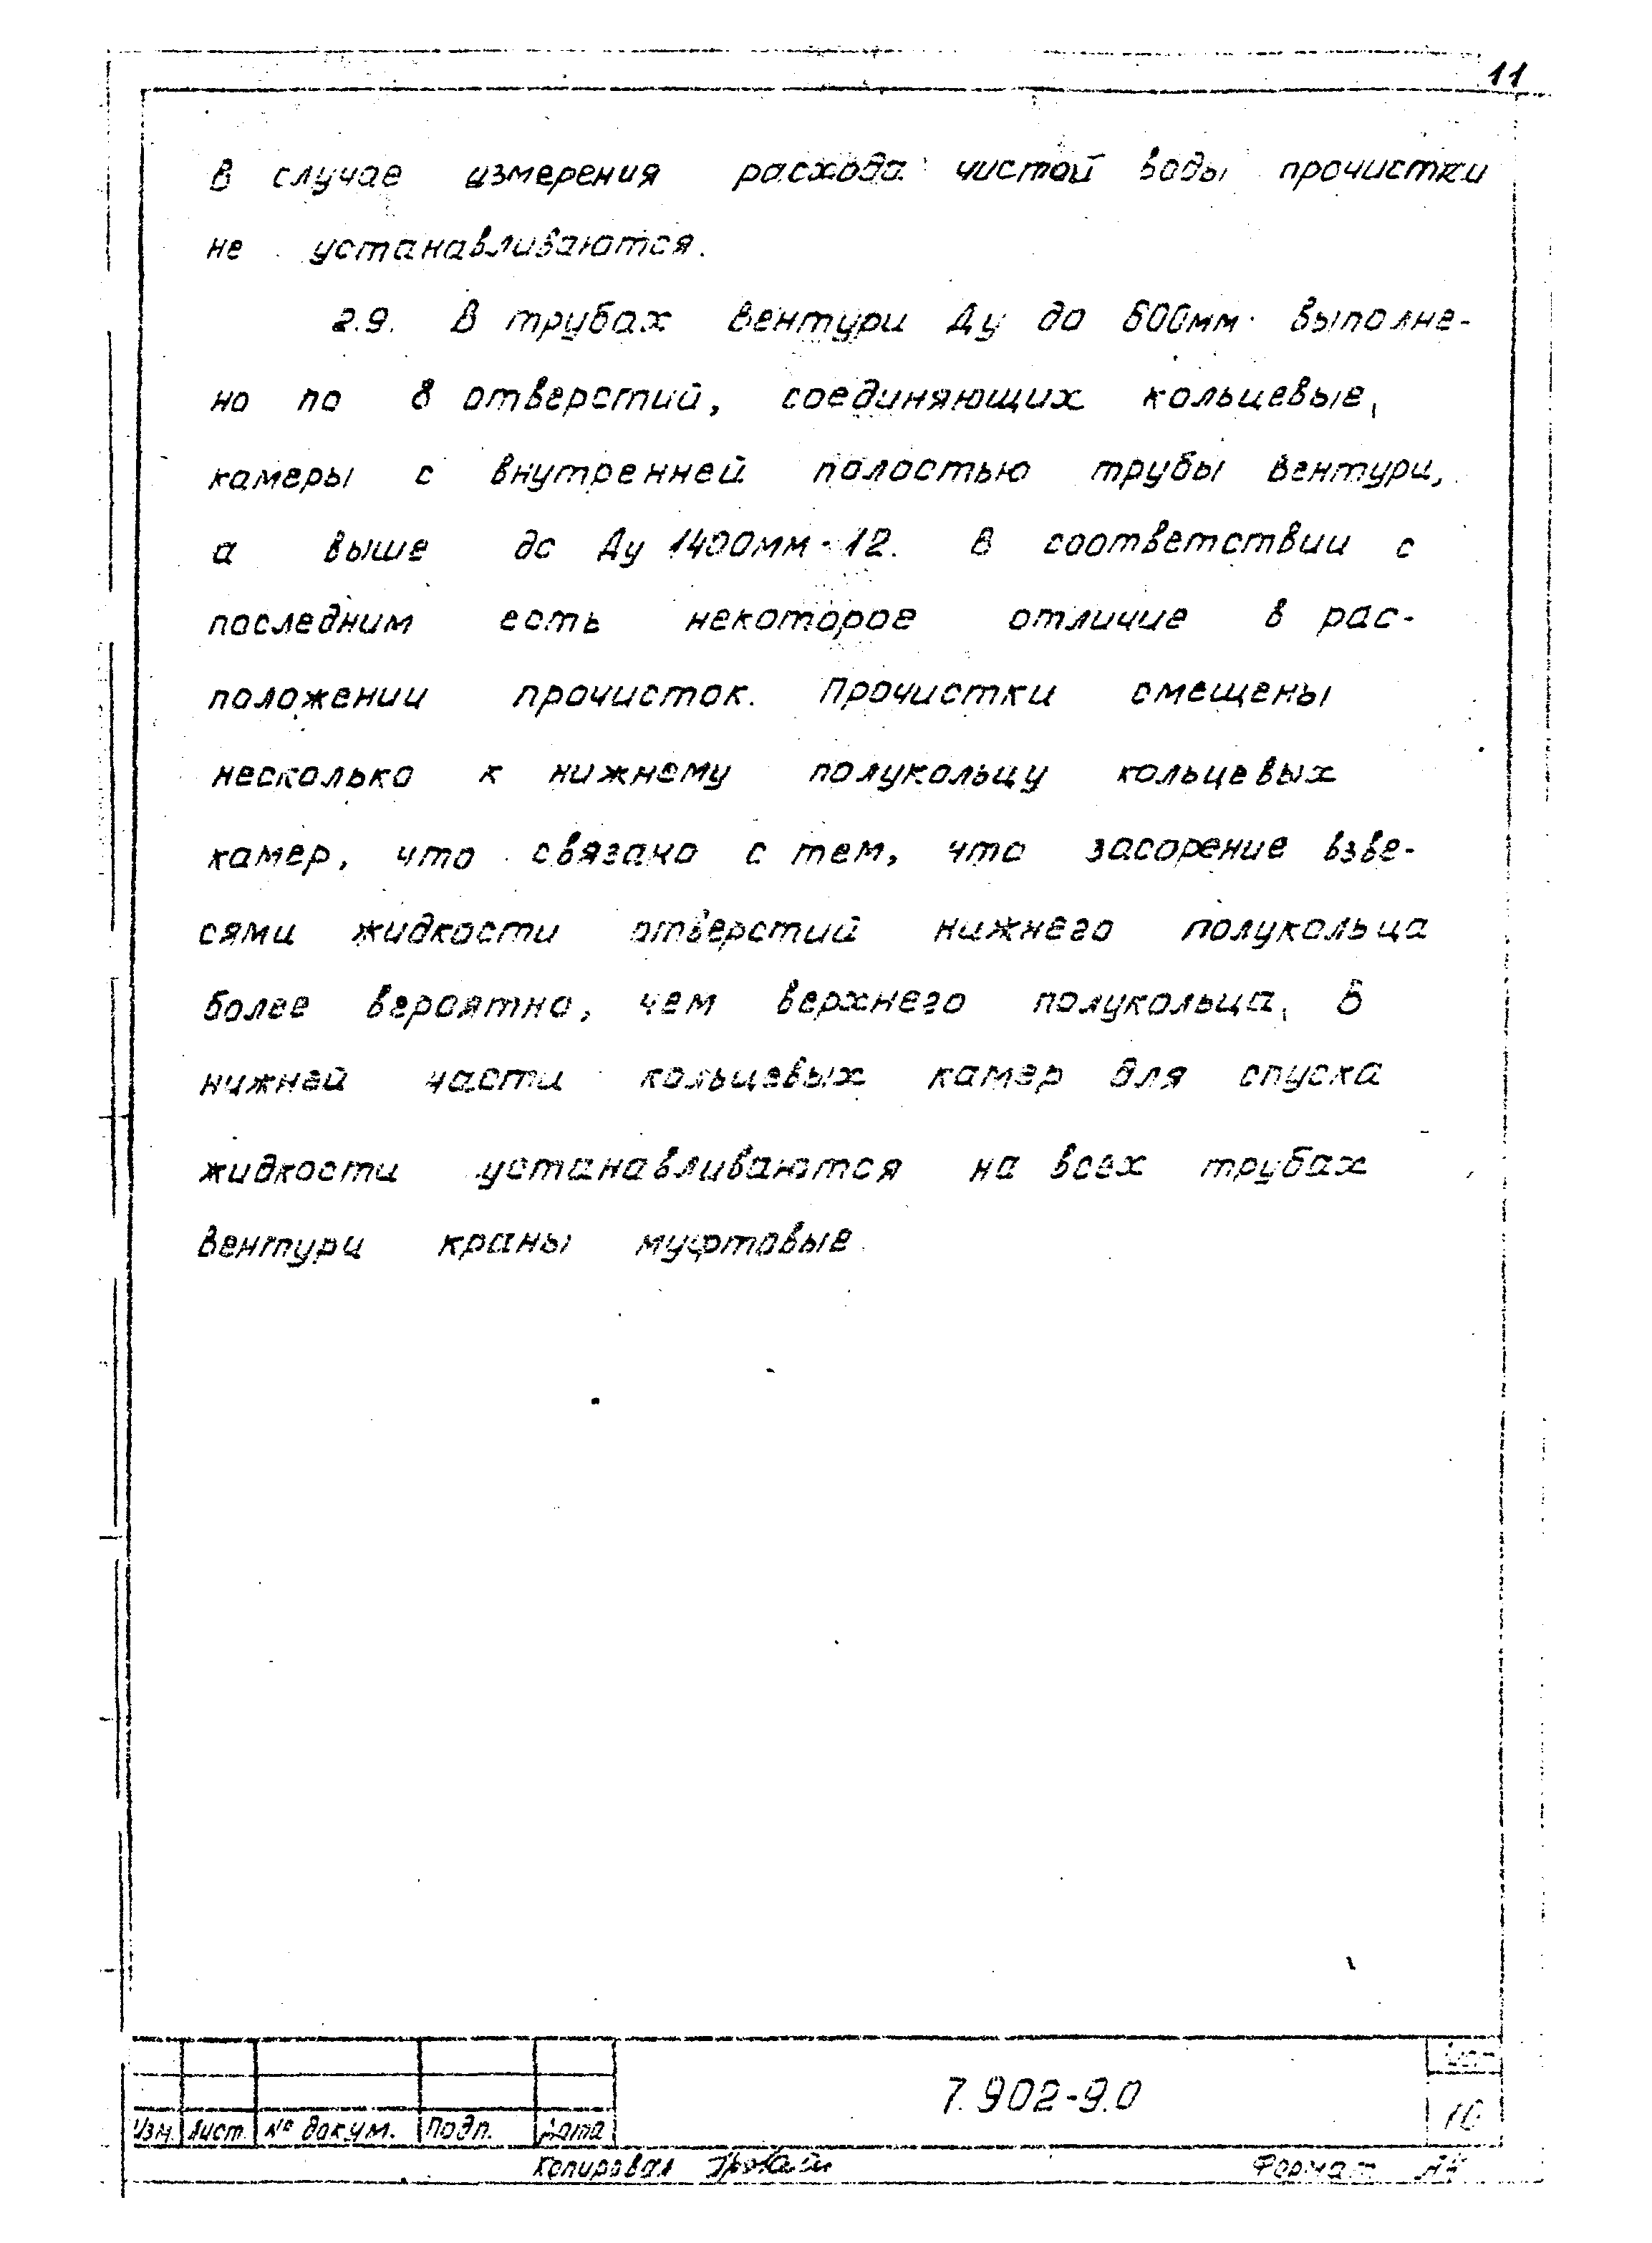 11
В случае измерения расхода чистой воды прочистки
не устанавливаются.
2.9. В трубах Вентури Ду до 600мм выполне-
но по 8 отверстий, соединяющих кольцевые
камеры с внутренней полостью трубы Вентури,
а выше до Ду 1400мм - 12. В соответствии с
последним есть некоторое отличие в рас-
положении прочисток. Прочистки смещены
несколько к нижнему полукольцу кольцевых
камер, что связано с тем, что засорение взве-
сями жидкости отверстий нижнего полукольца
более вероятно, чем верхнего полукольца, В
нижней части кольцевых камер для спуска
жидкости устанавливаются на всех трубах
Вентури краны муфтовые.
Изм. Лист № докум. Подп. Дата
7.902-9.0
Лист
10
Копировал
Формат А4